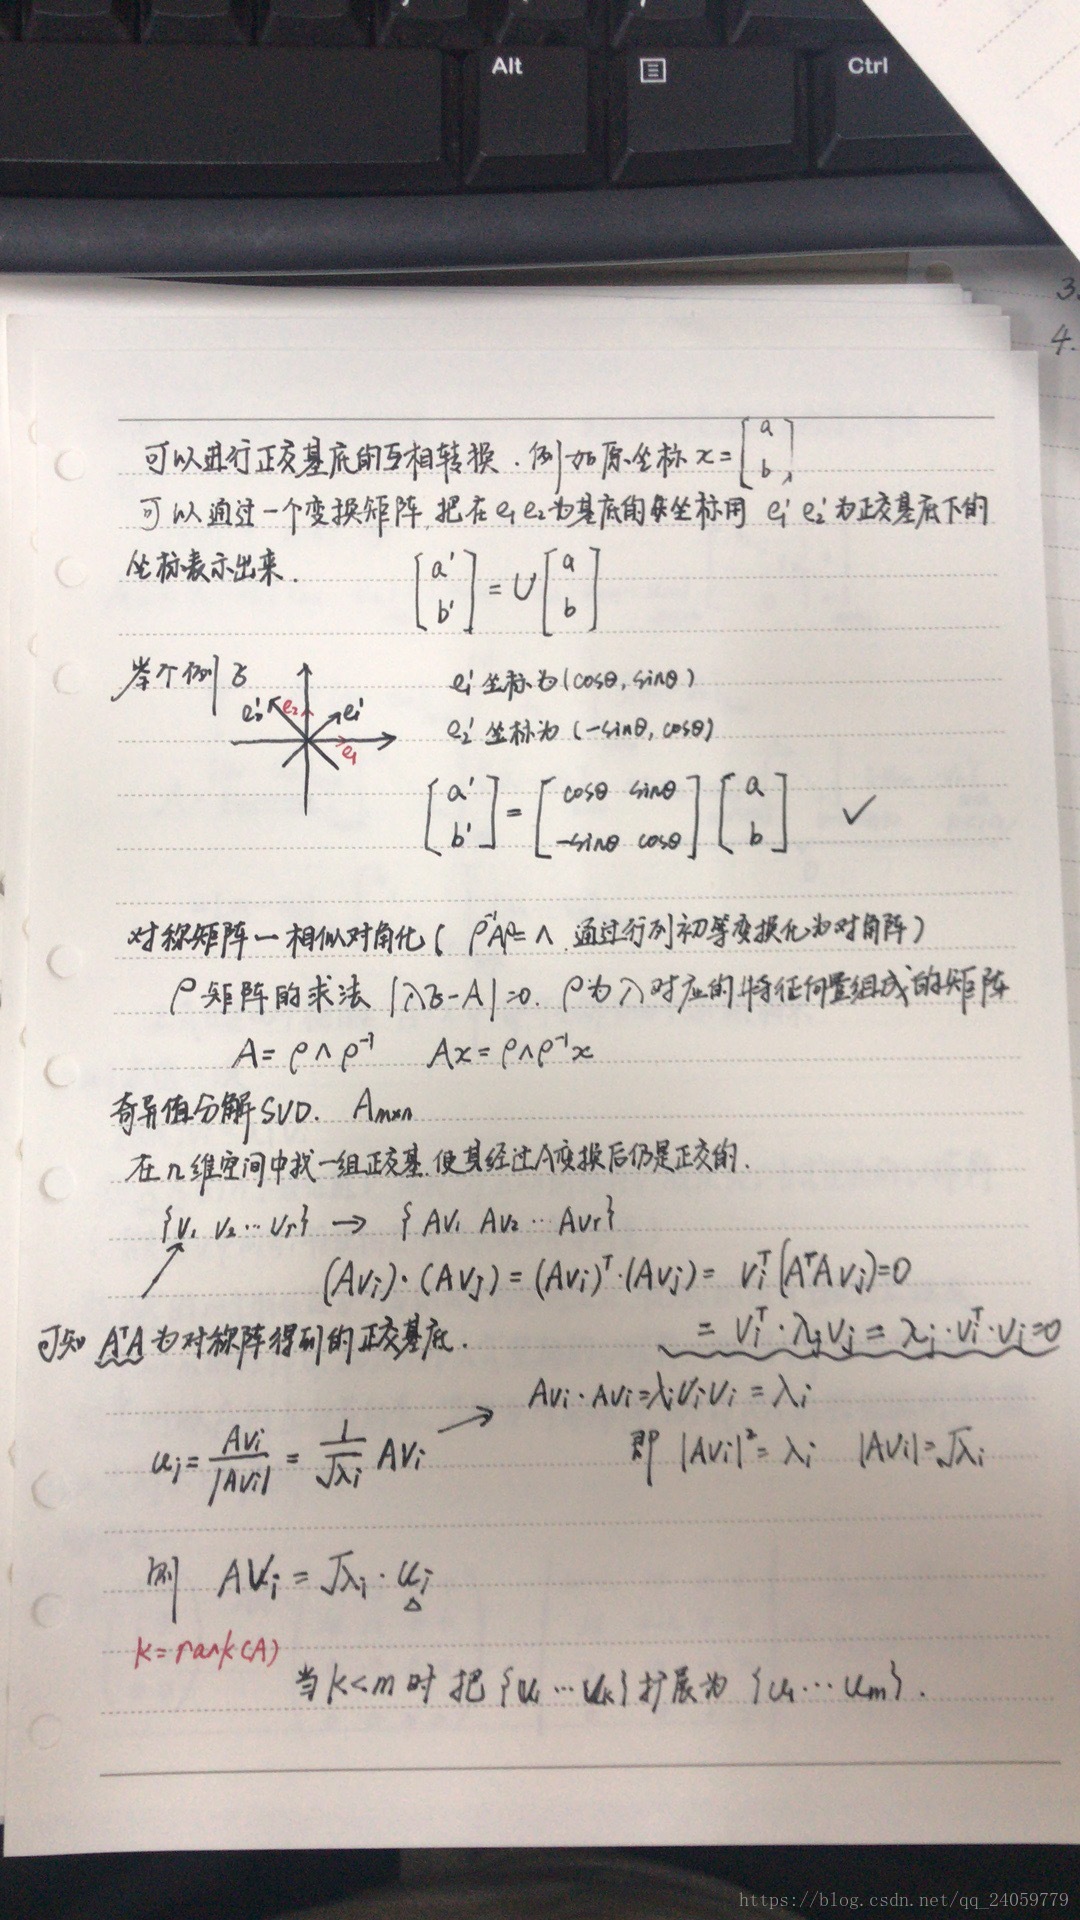 Alt Ctrl
3.
4.
可以进行正交基底的互相转换. 例如原坐标 x = [a b],
可以通过一个变换矩阵, 把在 e₁ e₂ 为基底的坐标用 e₁' e₂' 为正交基底下的
坐标表示出来. [a' b'] = U [a b]
举个例子 e₁' 坐标为 (cosθ, sinθ)
e₂' e₂ e₁' e₁ e₂' 坐标为 (-sinθ, cosθ)
[a' b'] = [cosθ sinθ -sinθ cosθ] [a b] ✓
对称矩阵 — 相似对角化 ( P⁻¹AP = Λ 通过行列初等变换化为对角阵)
P 矩阵的求法 |λE-A|=0. P为λ对应的特征向量组成的矩阵
A = PΛP⁻¹ Ax = PΛP⁻¹x
奇异值分解 SVD. Aₘₓₙ
在 n 维空间中找一组正交基, 使其经过A变换后仍是正交的.
{v₁ v₂ … vᵣ} → { Av₁ Av₂ … Avᵣ}
(Avᵢ)·(Avⱼ) = (Avᵢ)ᵀ·(Avⱼ) = vᵢᵀ(AᵀAvⱼ)=0
= vᵢᵀ·λⱼvⱼ = λⱼ·vᵢᵀ·vⱼ=0
可知 AᵀA 为对称阵得到的正交基底.
Avᵢ·Avᵢ=λᵢvᵢvᵢ = λᵢ
uᵢ = Avᵢ/|Avᵢ| = 1/√λᵢ Avᵢ → 即 |Avᵢ|² = λᵢ |Avᵢ|=√λᵢ
则 Avᵢ = √λᵢ · uᵢ
k=rank(A)
当 k<m 时 把 {u₁ … uₖ} 扩展为 {u₁ … uₘ}.
https://blog.csdn.net/qq_24059779